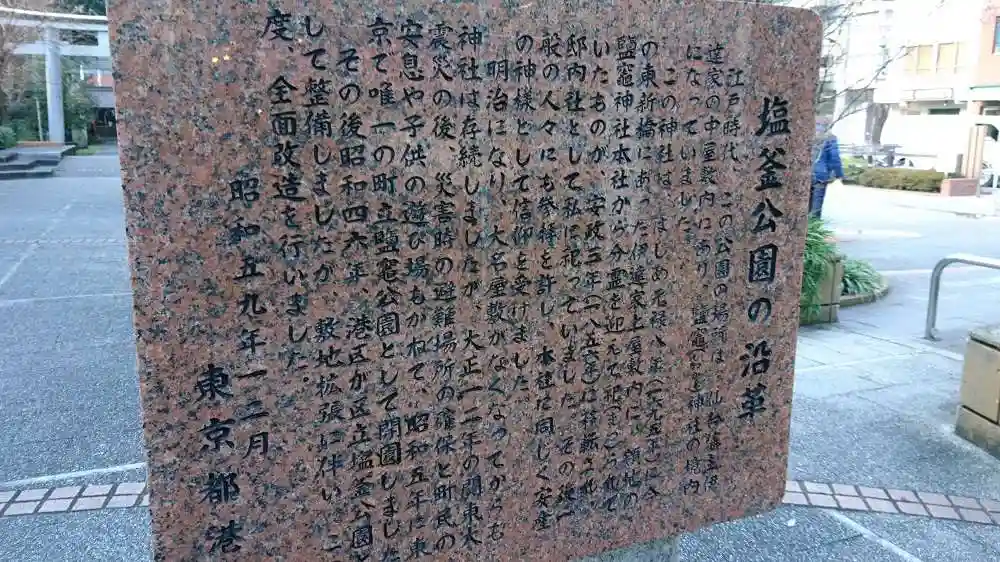 塩釜公園の沿革
江戸時代、この公園の場所は、仙台藩主伊
達家の中屋敷内にあり、鹽竈神社の境内
になっていました。
この神社は、はじめ元禄八年(一六九五年)に
の東新橋にあった伊達家上屋敷内に、領地の
鹽竈神社本社から分霊を迎えて祀
いたものが、安政三年(一八五六年)に移転され、
邸内社として私に祀っていました。その後一
般の人々にも参拝を許し、本社と同じく安産
の神様として信仰を受けました。
明治になり、大名屋敷がなくなってからも
神社は存続しましたが、大正一二年の関東大
震災の後、災害時の避難場所の確保と町民の
安息や子供の遊び場もかねて、昭和五年に東
京で唯一の町立鹽竈公園として開園しました
その後昭和四六年、港区が区立塩釜公園
して整備しましたが、敷地拡張に伴い、
度、全面改造を行いました。
昭和五九年一二月
東京都港